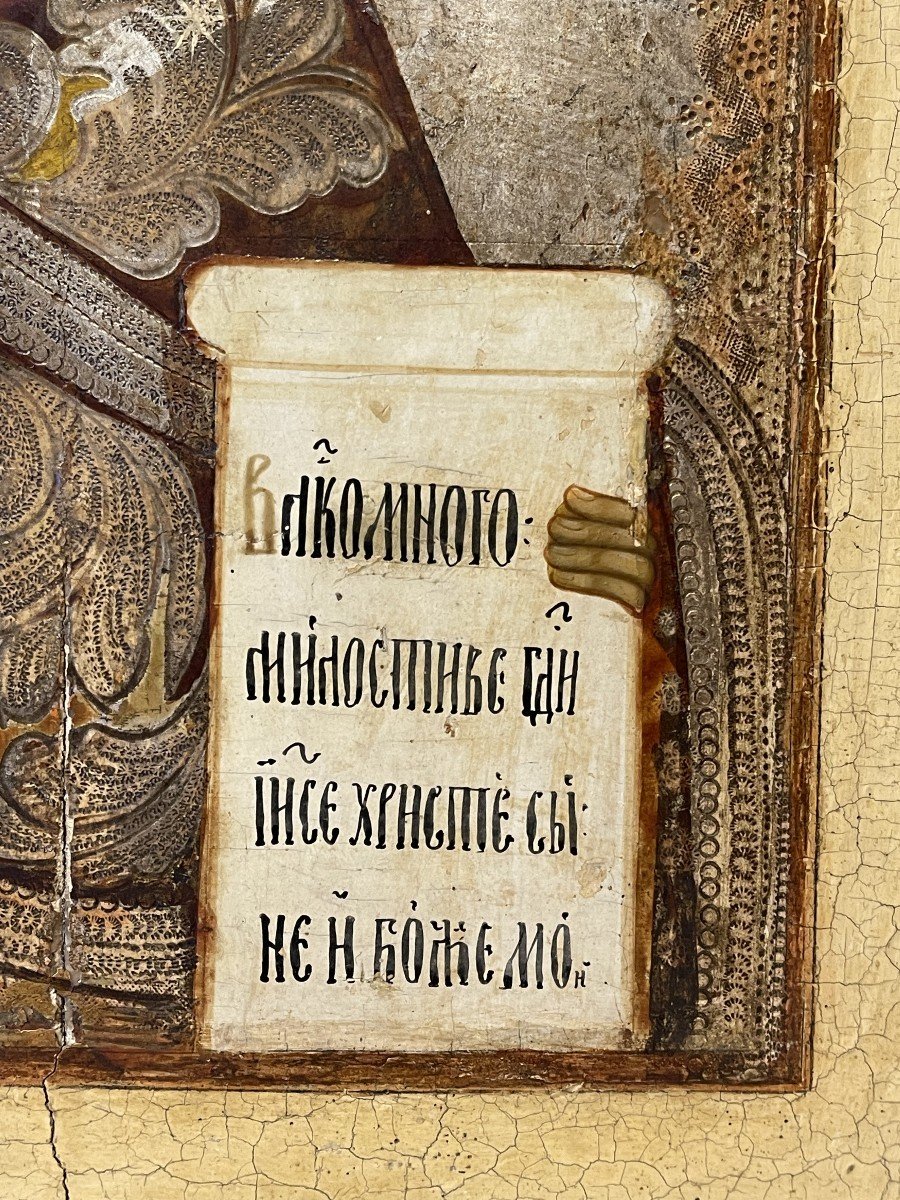 Влⷣко много:
ми́лостиве гдⷭ҇и
і҆и҃се христѐ сы́:
не и҆ бо́же мо́й